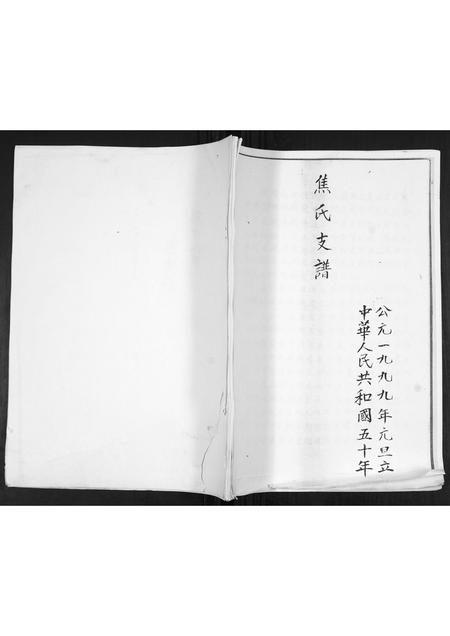 公元一九九九年元旦立
中華人民共和國五十年
焦氏支譜